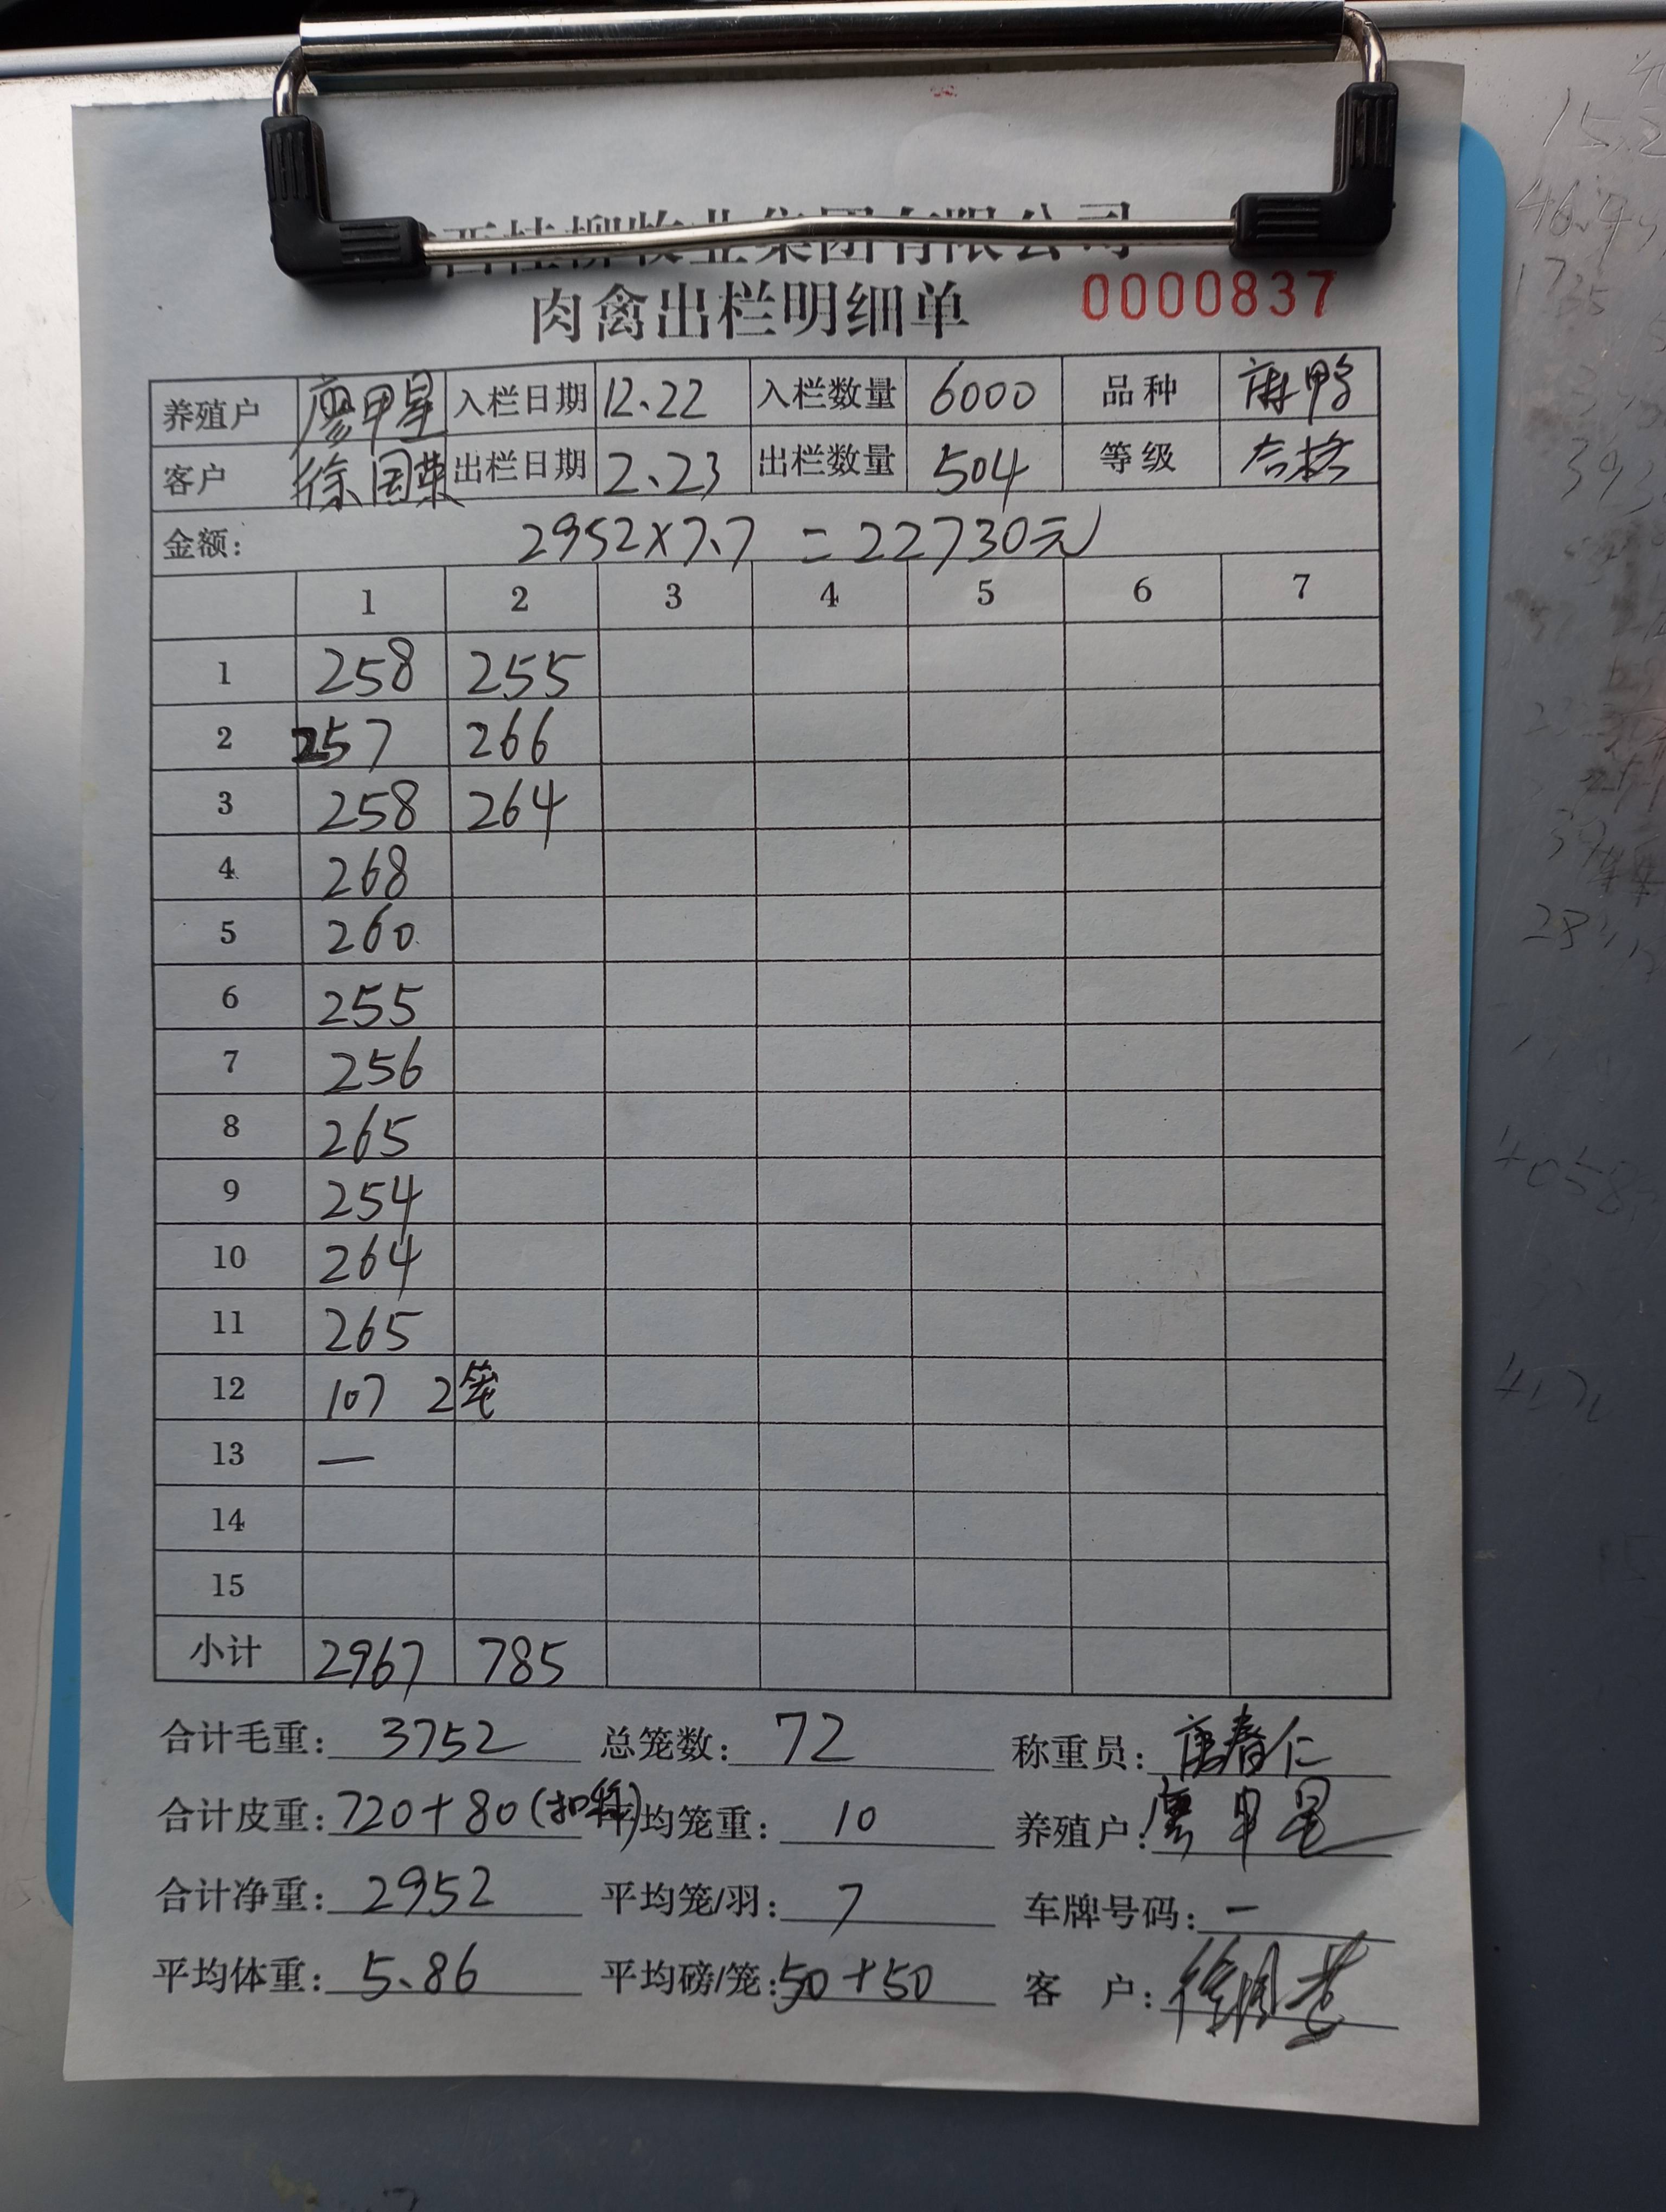 西桂柳牧业集团有限公司
肉禽出栏明细单 0000837
养殖户 廖甲星 入栏日期 12.22 入栏数量 6000 品种 麻鸭
客户 徐国荣 出栏日期 2.23 出栏数量 504 等级 合格
金额: 2952×7.7 = 22730元
1 2 3 4 5 6 7
1 258 255
2 257 266
3 258 264
4 268
5 260
6 255
7 256
8 265
9 254
10 264
11 265
12 107 2笼
13 —
14
15
小计 2967 785
合计毛重: 3752 总笼数: 72 称重员: 唐春仁
合计皮重: 720+80(扣料) 平均笼重: 10 养殖户: 廖甲星
合计净重: 2952 平均笼/羽: 7 车牌号码: —
平均体重: 5.86 平均磅/笼: 50+50 客 户: 徐国荣